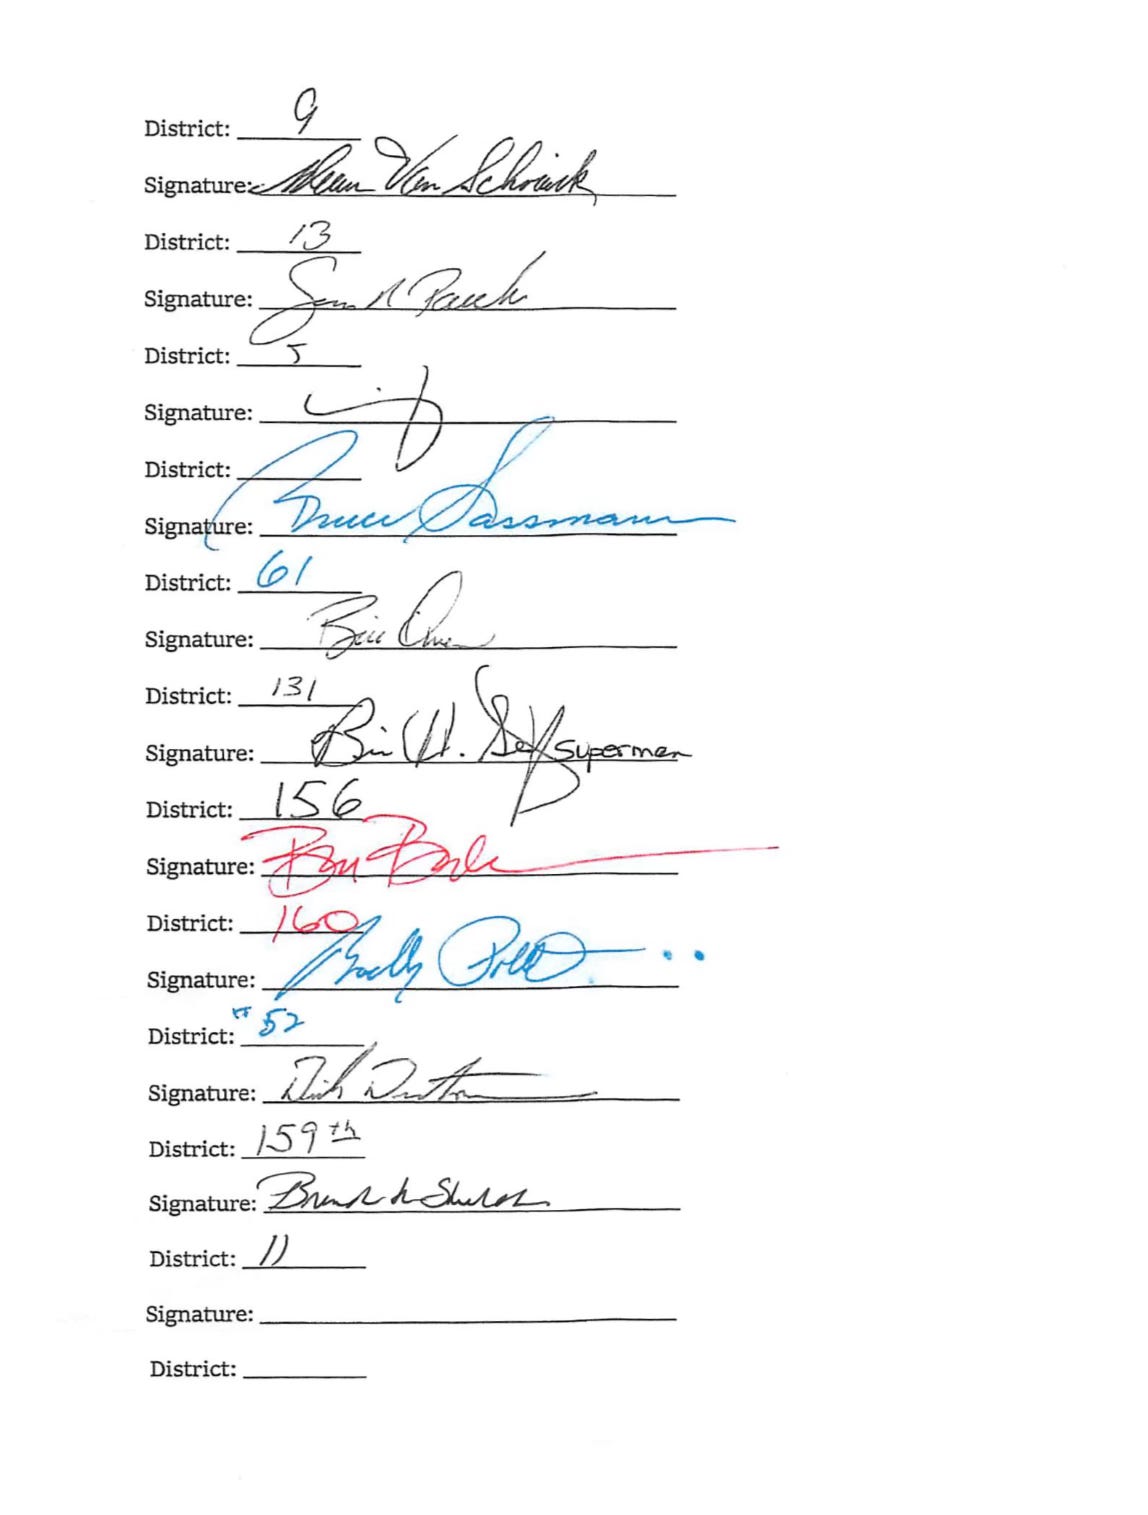 District: 9
Signature: Van Schoiack
District: 13
Signature: Sean Pouche
District: 5
Signature:
District:
Signature: Bruce Sassmann
District: 61
Signature: Bill Owen
District: 131
Signature: Bill H. superman
District: 156
Signature: Ben Baker
District: 160
Signature:
District: # 52
Signature:
District: 159th
Signature: Brenda Shields
District: 11
Signature:
District: